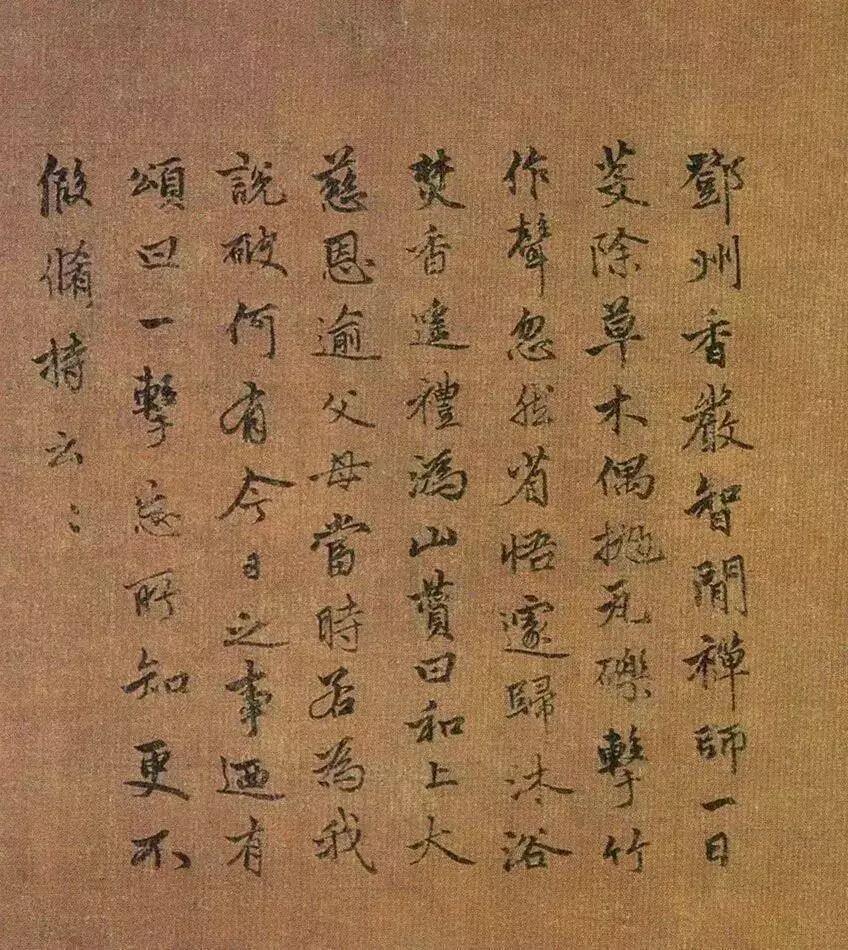 鄧州香嚴智閑禪師一日
芟除草木偶抛瓦礫擊竹
作聲忽然省悟遽歸沐浴
焚香遥禮溈山賛曰和上大
慈恩逾父母當時若為我
說破何有今日之事迺有
頌曰一擊忘所知更不
假脩持云〻